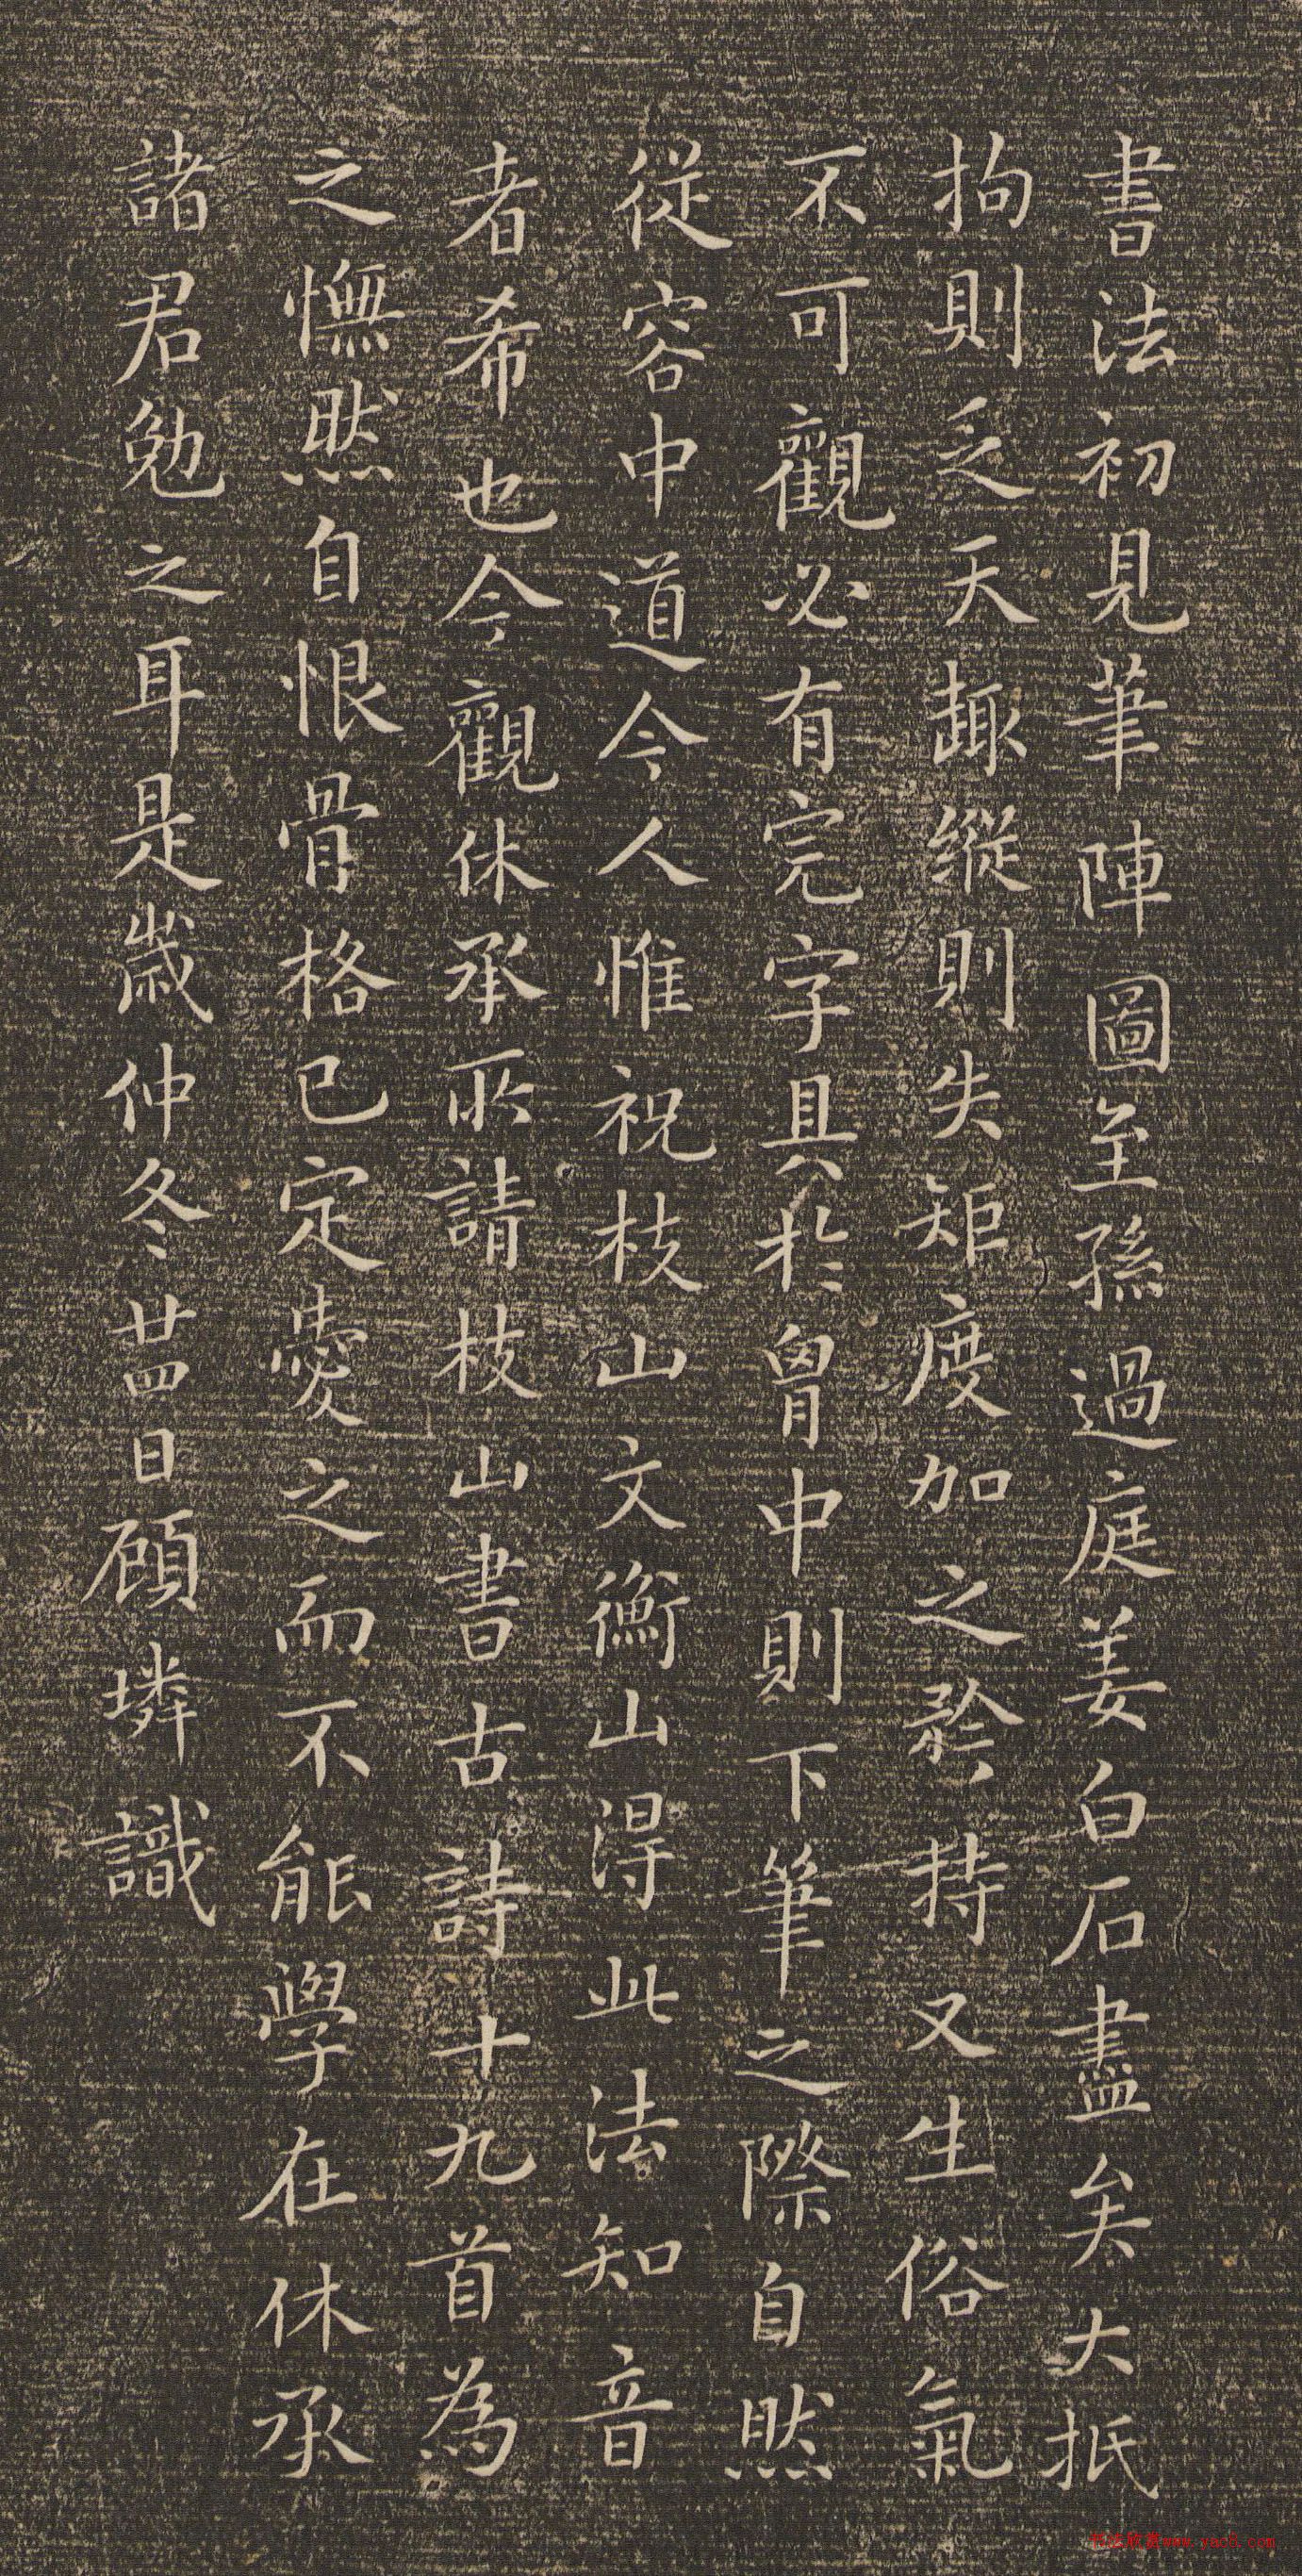 書法初見筆陣圖至孫過庭姜白石盡矣大抵
拘則乏天趣縱則失矩度加之矜持又生俗氣
不可觀必有完字具於胷中則下筆之際自然
從容中道今人惟祝枝山文衡山得此法知音
者希也今觀休承所請枝山書古詩十九首為
之憮然自恨骨格已定愛之而不能學在休承
諸君勉之耳是歲仲冬廿四日顧璘識
书法欣赏www.yac8.com